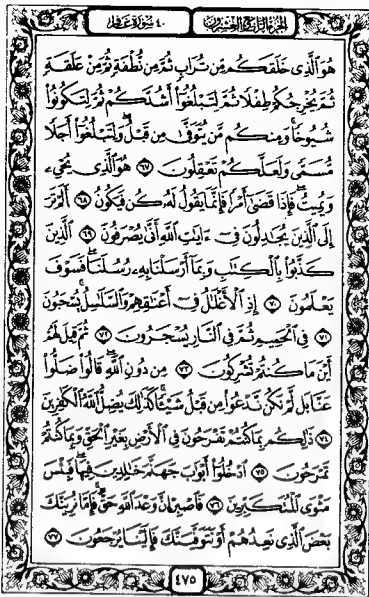 الجزء الرابع والعشرون
٤٠ سورة غافر
هُوَ ٱلَّذِى خَلَقَكُم مِّن تُرَابٍ ثُمَّ مِن نُّطْفَةٍ ثُمَّ مِنْ عَلَقَةٍ
ثُمَّ يُخْرِجُكُمْ طِفْلًا ثُمَّ لِتَبْلُغُوٓا۟ أَشُدَّكُمْ ثُمَّ لِتَكُونُوا۟
شُيُوخًا ۚ وَمِنكُم مَّن يُتَوَفَّىٰ مِن قَبْلُ ۖ وَلِتَبْلُغُوٓا۟ أَجَلًا
مُّسَمًّى وَلَعَلَّكُمْ تَعْقِلُونَ ٦٧ هُوَ ٱلَّذِى يُحْىِۦ
وَيُمِيتُ ۖ فَإِذَا قَضَىٰٓ أَمْرًا فَإِنَّمَا يَقُولُ لَهُۥ كُن فَيَكُونُ ٦٨ أَلَمْ تَرَ
إِلَى ٱلَّذِينَ يُجَـٰدِلُونَ فِىٓ ءَايَـٰتِ ٱللَّهِ أَنَّىٰ يُصْرَفُونَ ٦٩ ٱلَّذِينَ
كَذَّبُوا۟ بِٱلْكِتَـٰبِ وَبِمَآ أَرْسَلْنَا بِهِۦ رُسُلَنَا ۖ فَسَوْفَ
يَعْلَمُونَ ٧٠ إِذِ ٱلْأَغْلَـٰلُ فِىٓ أَعْنَـٰقِهِمْ وَٱلسَّلَـٰسِلُ يُسْحَبُونَ
٧١ فِى ٱلْحَمِيمِ ثُمَّ فِى ٱلنَّارِ يُسْجَرُونَ ٧٢ ثُمَّ قِيلَ لَهُمْ
أَيْنَ مَا كُنتُمْ تُشْرِكُونَ ٧٣ مِن دُونِ ٱللَّهِ ۖ قَالُوا۟ ضَلُّوا۟
عَنَّا بَل لَّمْ نَكُن نَّدْعُوا۟ مِن قَبْلُ شَيْـًٔا ۚ كَذَٰلِكَ يُضِلُّ ٱللَّهُ ٱلْكَـٰفِرِينَ
٧٤ ذَٰلِكُم بِمَا كُنتُمْ تَفْرَحُونَ فِى ٱلْأَرْضِ بِغَيْرِ ٱلْحَقِّ وَبِمَا كُنتُمْ
تَمْرَحُونَ ٧٥ ٱدْخُلُوٓا۟ أَبْوَٰبَ جَهَنَّمَ خَـٰلِدِينَ فِيهَا ۖ فَبِئْسَ
مَثْوَى ٱلْمُتَكَبِّرِينَ ٧٦ فَٱصْبِرْ إِنَّ وَعْدَ ٱللَّهِ حَقٌّ ۚ فَإِمَّا نُرِيَنَّكَ
بَعْضَ ٱلَّذِى نَعِدُهُمْ أَوْ نَتَوَفَّيَنَّكَ فَإِلَيْنَا يُرْجَعُونَ ٧٧
٤٧٥